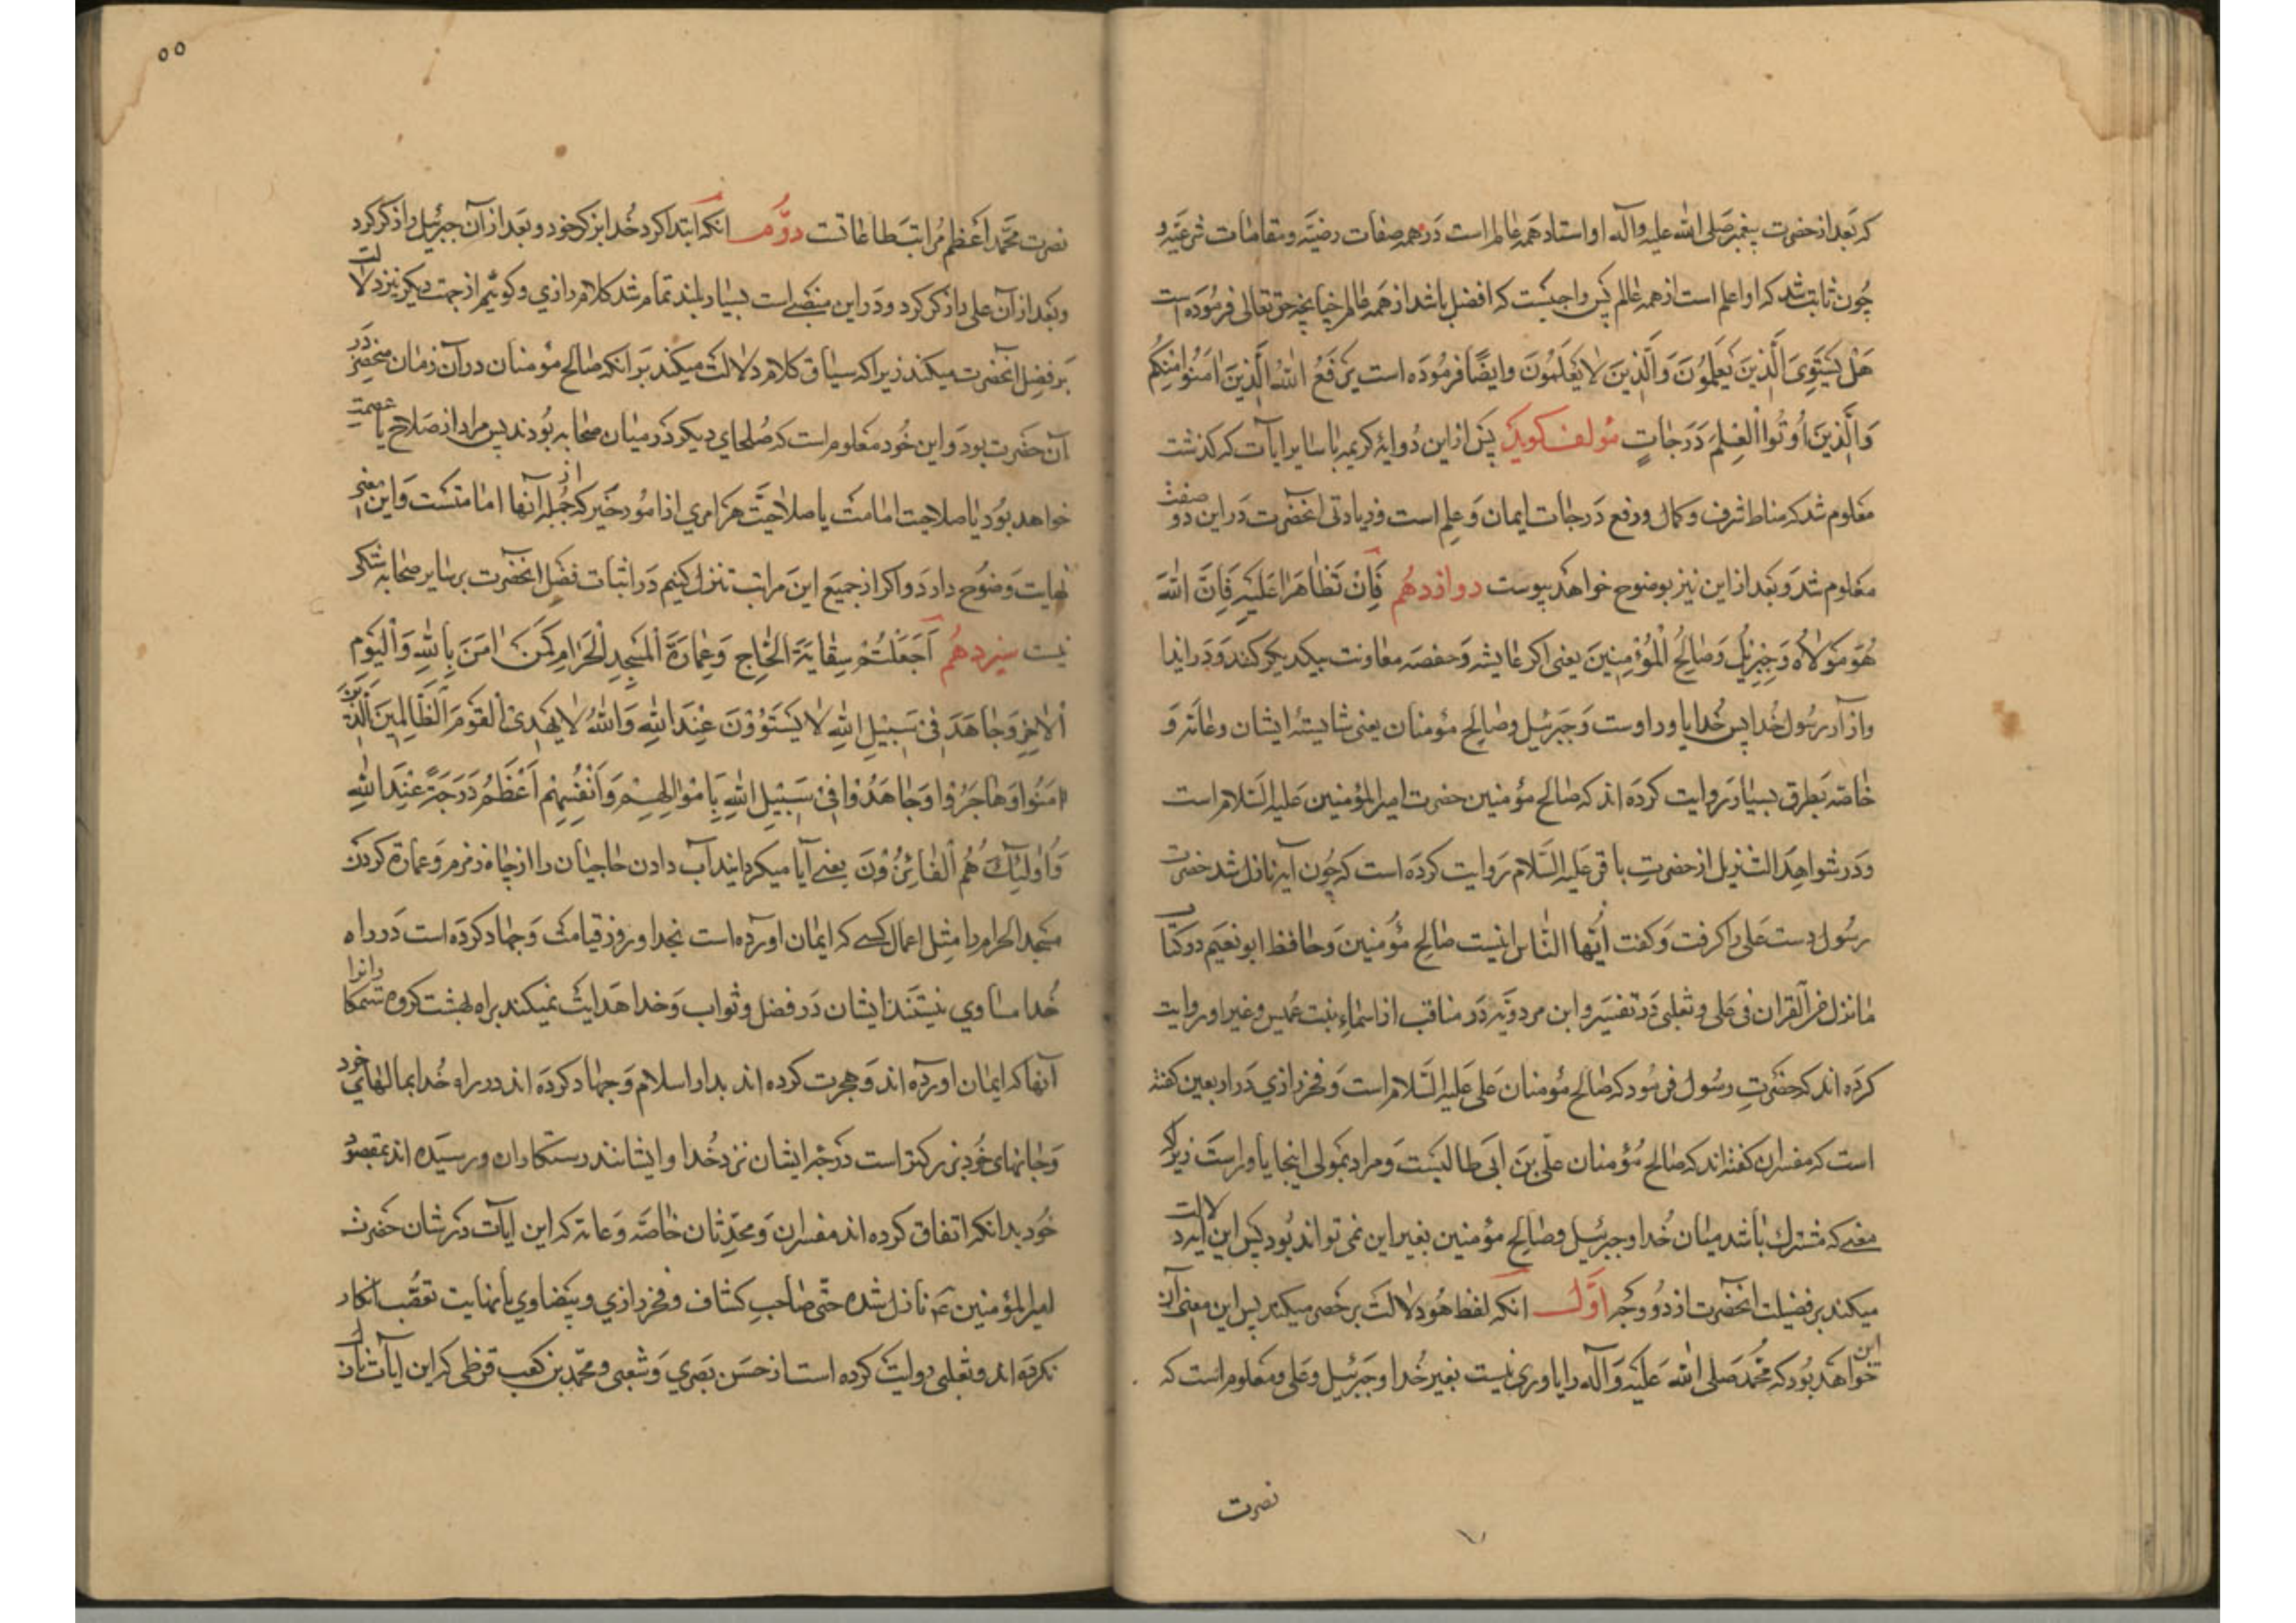 که بعد از حضرت پیغمبر صلی الله علیه وآله او استاد همه عالم است در همه صفات رضیّه ومقامات شرعیّه و
چون ثابت شد که او اعلم است از همه عالم پس واجبست که افضل باشد از همه عالم چنانچه حق تعالی فرموده است
هَل یَستَوِی الَّذینَ یَعلَمُونَ وَالَّذینَ لا یَعلَمُونَ وایضًا فرموده است یَرفَعُ اللهُ الَّذینَ امَنُوا مِنکُم
وَالَّذینَ اُوتُوا العِلمَ دَرَجاتٍ مؤلف کوید پس از این دو ایهٔ کریمه با سایر ایات که کذشت
معلوم شد که مناط شرف وکمال ورفع درجات ایمان وعلم است وزیادتی انحضرت در این دو صفت
معلوم شد وبعد از این نیز بوضوح خواهد پیوست دوازدهم فَاِن تَظاهَرا عَلَیهِ فَاِنَّ اللهَ
هُوَ مَولاهُ وَجِبریلُ وَصالِحُ المُؤمِنینَ یعنی اکر عایشه وحفصه معاونت یکدیکر کنند ودر ایذا
وازار رسول خدا پس خدا یاور اوست وجبرئیل وصالح مؤمنان یعنی شایستهٔ ایشان وعامّه و
خاصّه بطرق بسیار روایت کرده اند که صالح مؤمنین حضرت امیر المؤمنین علیه السلام است
ودر شواهد التنزیل از حضرت باقر علیه السّلام روایت کرده است که چون آیه نازل شد حضرت
رسول دست علی را کرفت وکفت ایّها النّاس اینست صالح مؤمنین وحافظ ابو نعیم در کتاب
ما نزل من القران فی علی وثعلبی در تفسیر وابن مردویه در مناقب از اسماء بنت عمیس وغیر او روایت
کرده اند که حضرت رسول فرمود که صالح مؤمنان علی علیه السّلام است وفخر رازی در اربعین کفته
است که مفسران کفته اند که صالح مؤمنان علی بن ابی طالبست ومراد بمولی اینجا یاور است زیرا که
معنی که مشترک باشد میان خدا وجبرئیل وصالح مؤمنین بغیر این نمی تواند بود پس این ایه دلالت
میکند بر فضیلت انحضرت از دو وجه اوّل انکه لفظ هو دلالت بر حصر میکند پس این معنی آن
خواهد بود که محمّد صلی الله علیه وآله را یاوری نیست بغیر خدا وجبرئیل وعلی ومعلوم است که این
نصرت
٥٥
نصرت محمّد اعظم مراتب طاعاتست دوّم انکه ابتدا کرد خدا بذکر خود وبعد از آن جبرئیل را ذکر کرد
وبعد از آن علی را ذکر کرد ودر این منصبی است بسیار بلند تمام شد کلام رازی وکوئیم از جهت دیکر نیز دلالت
بر فضل انحضرت میکند زیرا که سیاق کلام دلالت میکند بر انکه صالح مؤمنان در آن زمان منحصر در
آن حضرت بود واین خود معلوم است که صلحای دیکر در میان صحابه بودند پس مراد از صلاح یا عصمت
خواهد بود یا صلاحیت امامت یا صلاحیّت هر امری از امور خیر که از جمله آنها امامتست واین معنی
نهایت وضوح دارد واکر از جمیع این مراتب تنزل کنیم در اثبات فضل انحضرت بر سایر صحابه شکی
نیست سیزدهم اَجَعَلتُم سِقایَةَ الحاجِّ وَعِمارَةَ المَسجِدِ الحَرامِ کَمَن امَنَ بِاللهِ وَالیَومِ
الاخِرِ وَجاهَدَ فی سَبیلِ اللهِ لا یَستَوُونَ عِندَ اللهِ وَاللهُ لا یَهدِی القَومَ الظّالِمینَ الَّذینَ
امَنُوا وَهاجَرُوا وَجاهَدُوا فی سَبیلِ اللهِ بِاَموالِهِم وَاَنفُسِهِم اَعظَمُ دَرَجَةً عِندَ اللهِ
وَاُولئِکَ هُمُ الفائِزُونَ یعنی آیا میکردانید آب دادن حاجیان را از چاه زمزم وعمارة کردن
مسجد الحرام را مثل اعمال کسی که ایمان اورده است بخدا وروز قیامت وجهاد کرده است در راه
خدا مساوی نیستند ایشان در فضل وثواب وخدا هدایت نمیکند براه بهشت کروه ستمکاران را
آنها که ایمان اورده اند وهجرت کرده اند بدار اسلام وجهاد کرده اند در راه خدا بمالهای خود
وجانهای خود بزرکتر است درجه ایشان نزد خدا وایشانند رستکاران ورسیده اند بمقصود
خود بدانکه اتفاق کرده اند مفسران ومحدّثان خاصّه وعامّه که این ایات در شان حضرت
امیر المؤمنین ع نازل شده حتّی صاحب کشاف وفخر رازی وبیضاوی با نهایت تعصّب انکار
نکرده اند وثعلبی روایت کرده است از حسن بصری وشعبی ومحمّد بن کعب قرظی که این ایات نازل